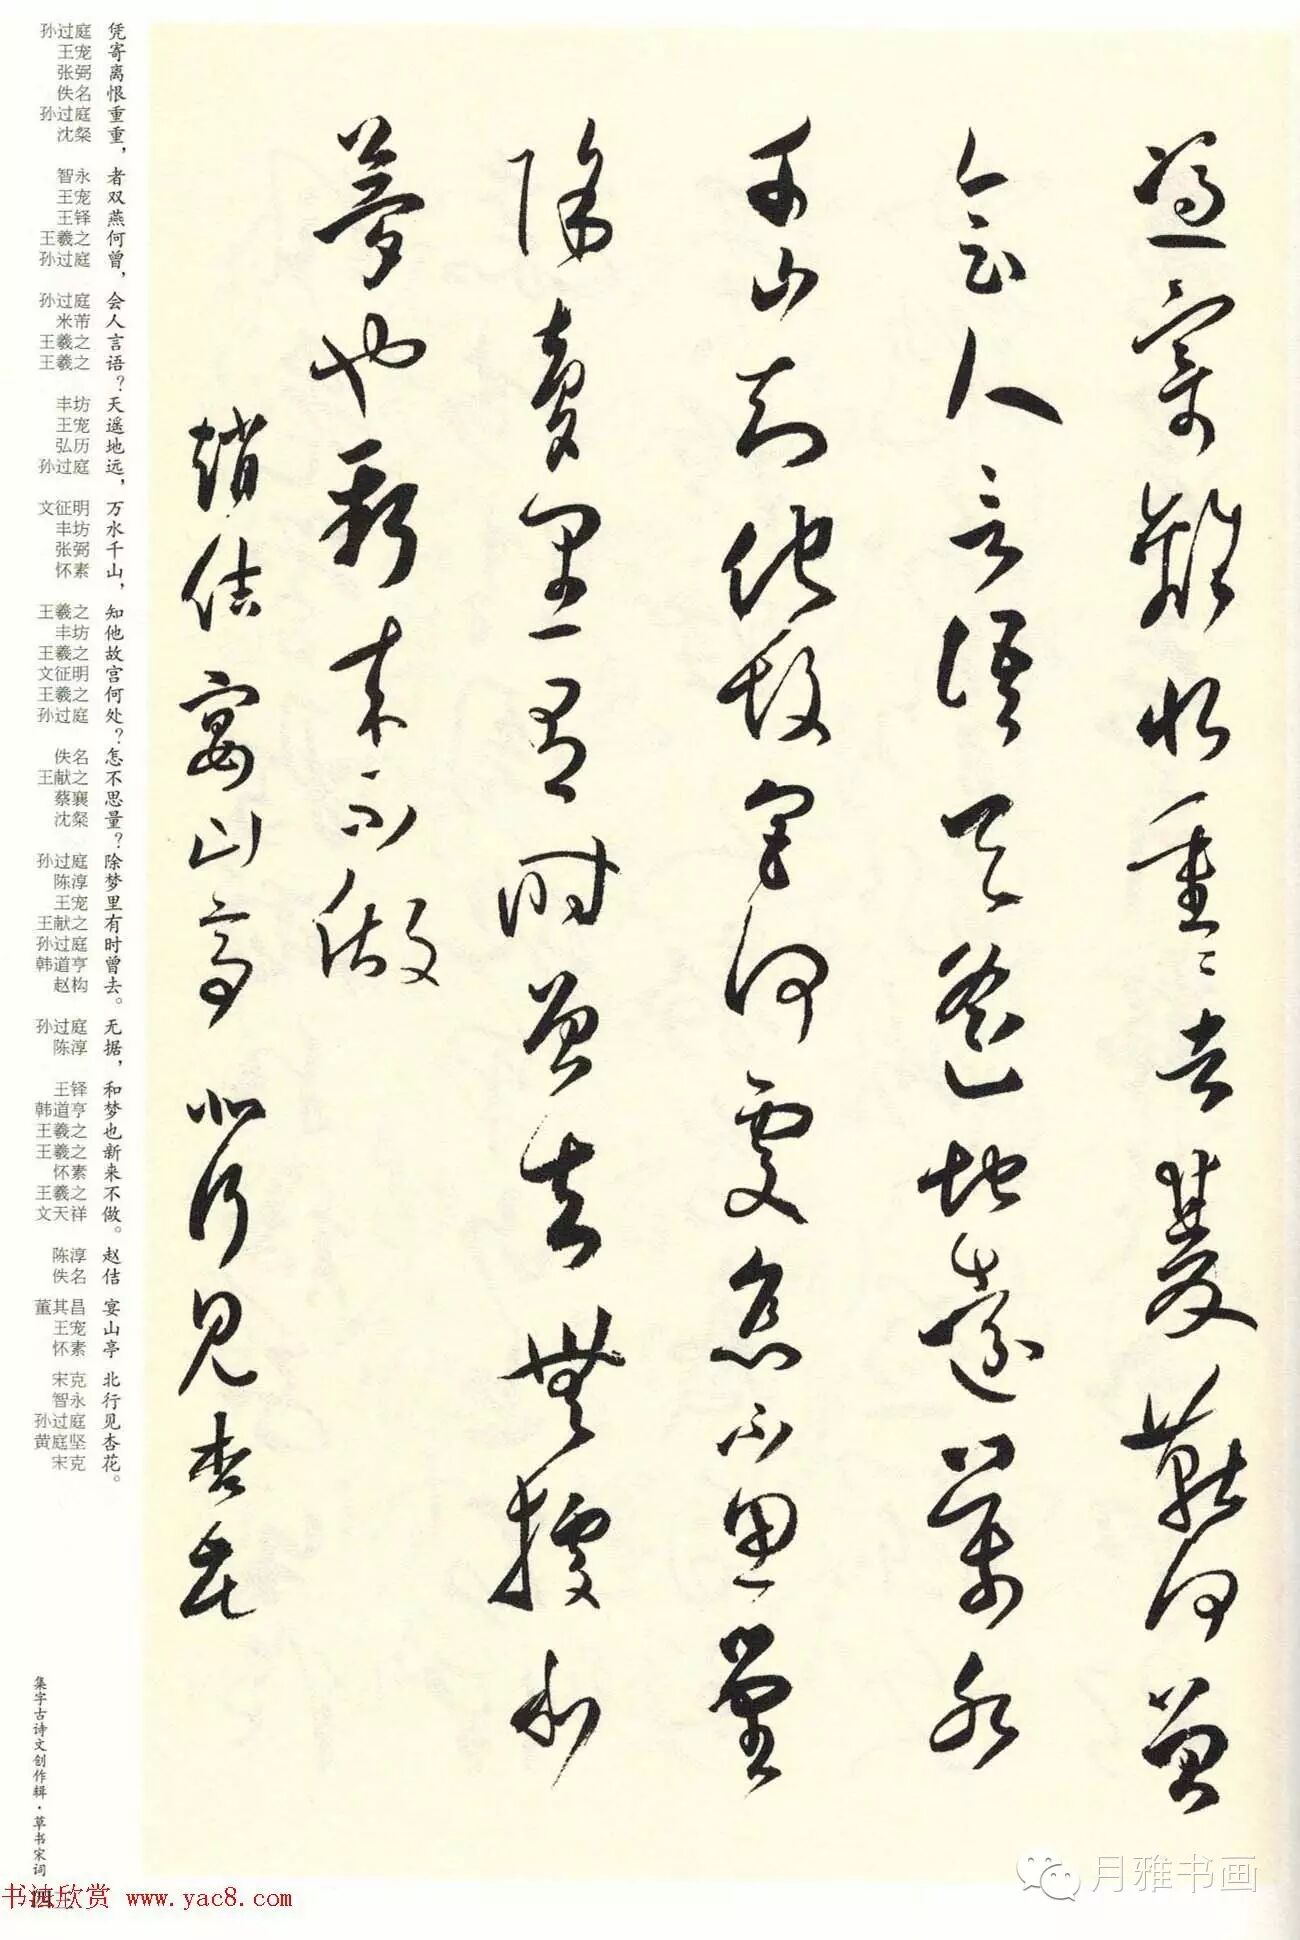 憑寄離恨重重者雙燕何曾
會人言語天遙地遠萬水
千山知他故宮何處怎不思量
除夢里有時曾去無據和
夢也新來不做
趙佶宴山亭北行見杏花
凭寄离恨重重，者双燕何曾，会人言语？天遥地远，万水千山，知他故宫何处？怎不思量？除梦里有时曾去。无据，和梦也新来不做。赵佶 宴山亭 北行见杏花。
孙过庭 王宠 张弼 佚名 孙过庭 沈粲 智永 王宠 王铎 王羲之 孙过庭 孙过庭 米芾 王羲之 王羲之 丰坊 王宠 弘历 孙过庭 文征明 丰坊 张弼 怀素 王羲之 丰坊 王羲之 文征明 王羲之 孙过庭 佚名 王献之 蔡襄 沈粲 孙过庭 陈淳 王宠 王献之 孙过庭 韩道亨 赵构 孙过庭 陈淳 王铎 韩道亨 王羲之 王羲之 怀素 王羲之 文天祥 陈淳 佚名 董其昌 王宠 怀素 宋克 智永 孙过庭 黄庭坚 宋克
集字古诗文创作辑·草书宋词
书法欣赏 www.yac8.com
月雅书画